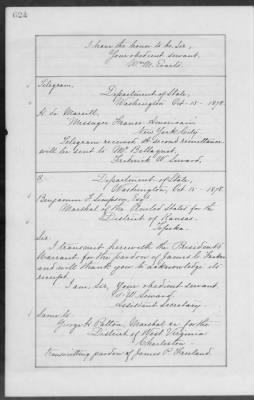 624
I have the honor to be, Sir,
Your obedient servant,
Wm. M. Evarts.
Telegram.
Department of State,
Washington Oct. 15 - 1878.
A. Le
Messager Franco-Americain
New York City.
Telegram received. A second remittance
will be sent to Mr
Frederick W. Seward.
Department of State,
Washington, Oct. 15 - 1878.
Benjamin F. Simpson, Esq.
Marshal of the United States for the
District of Kansas.
Topeka
Sir
I transmit herewith the President's
Warrant for the pardon of James C.
and will thank you to acknowledge its
receipt.
I am, Sir, Your obedient servant
F. W. Seward.
Assistant Secretary.
Same to
George W. Patton, Marshal &c for the
District of West Virginia
Charleston -
Transmitting pardon of James P.